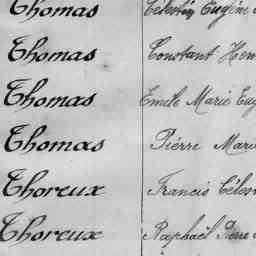 Thomas Célestin Eugène
Thomas Constant Hen
Thomas Emile Marie Eug
Thomas Pierre Mari
Thoreux Francis Céles
Thoreux Raphaël Pierre